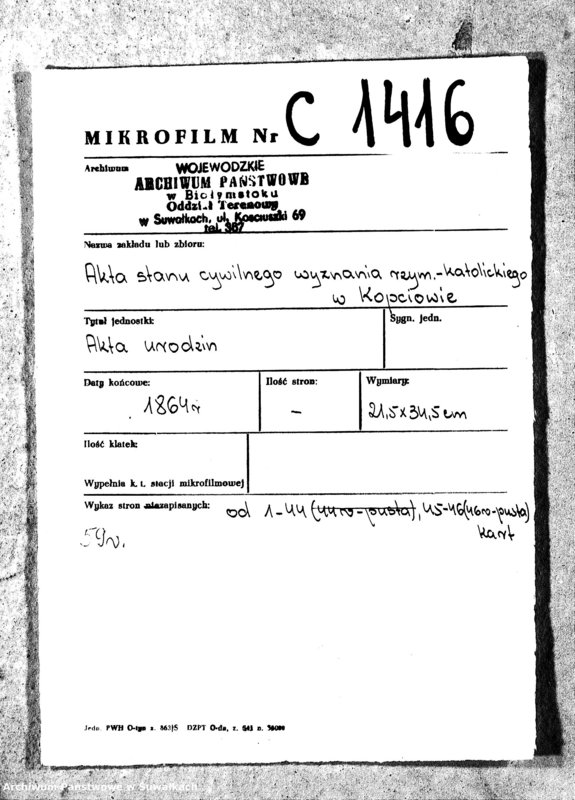 MIKROFILM Nr C 1416
Archiwum
WOJEWODZKIE
ARCHIWUM PAŃSTWOWE
w Białymstoku
Oddział Terenowy
w Suwałkach, ul. Kościuszki 69
tel. 367
Nazwa zakładu lub zbioru:
Akta stanu cywilnego wyznania rzym.-katolickiego
w Kopciowie
Tytuł jednostki:
Sygn. jedn.
Akta urodzin
Daty końcowe:
Ilość stron:
Wymiary:
1864r
–
21,5x34,5cm
Ilość klatek:
Wypełnia k. t. stacji mikrofilmowej
Wykaz stron niezapisanych:
od 1-44 (44ro-pusta), 45-46(46ro-pusta)
kart
59v.
Jedn. PWH O-tyn z. 863/5 DZPT O-da, z. 641 n. 50000
Archiwum Państwowe w Suwałkach